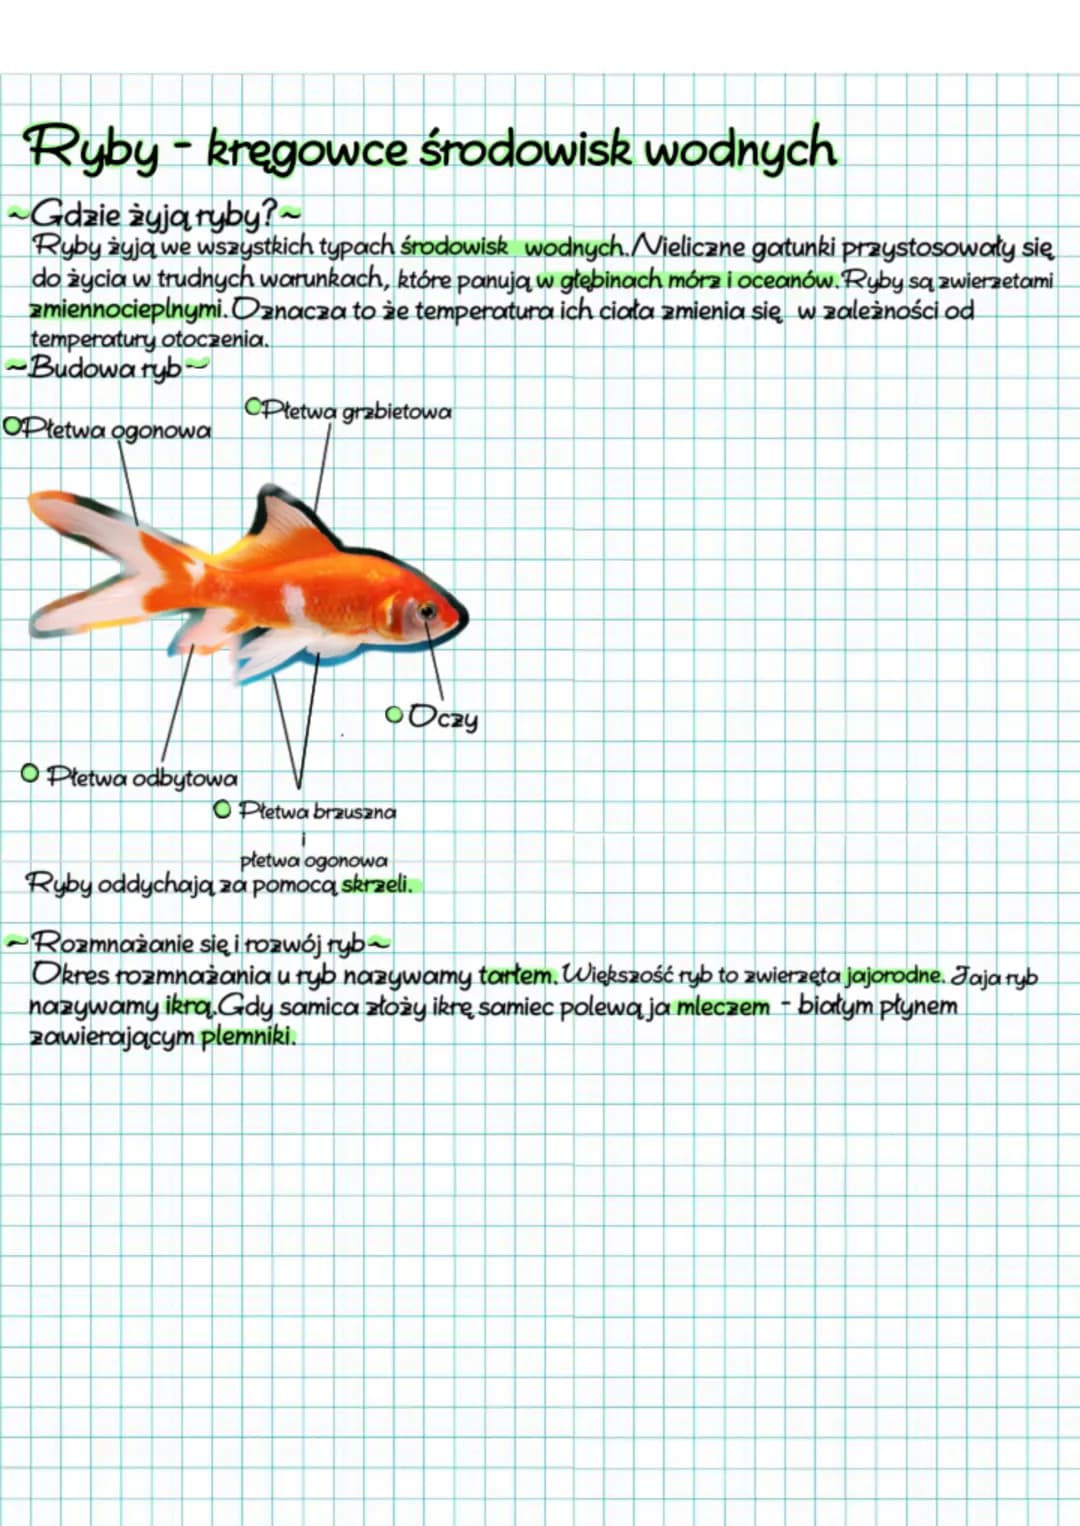 Ryby - kręgowce środowisk wodnych
~Gdzie żyją ryby?~
Ryby żyją we wszystkich typach środowisk wodnych. Nieliczne gatunki przystosowały się
do życia w trudnych warunkach, które panują w głębinach mórz i oceanów. Ryby są zwierzetami
zmiennocieplnymi. Oznacza to że temperatura ich ciała zmienia się w zależności od
temperatury otoczenia.
~Budowa ryb~
Płetwa grzbietowa
Płetwa ogonowa
Oczy
Płetwa odbytowa
Płetwa brzuszna
i
płetwa ogonowa
Ryby oddychają za pomocą skrzeli.
~Rozmnażanie się i rozwój ryb~
Okres rozmnażania u ryb nazywamy tarłem. Większość ryb to zwierzęta jajorodne. Jaja ryb
nazywamy ikrą. Gdy samica złoży ikrę samiec polewa ja mleczem - białym płynem
zawierającym plemniki.